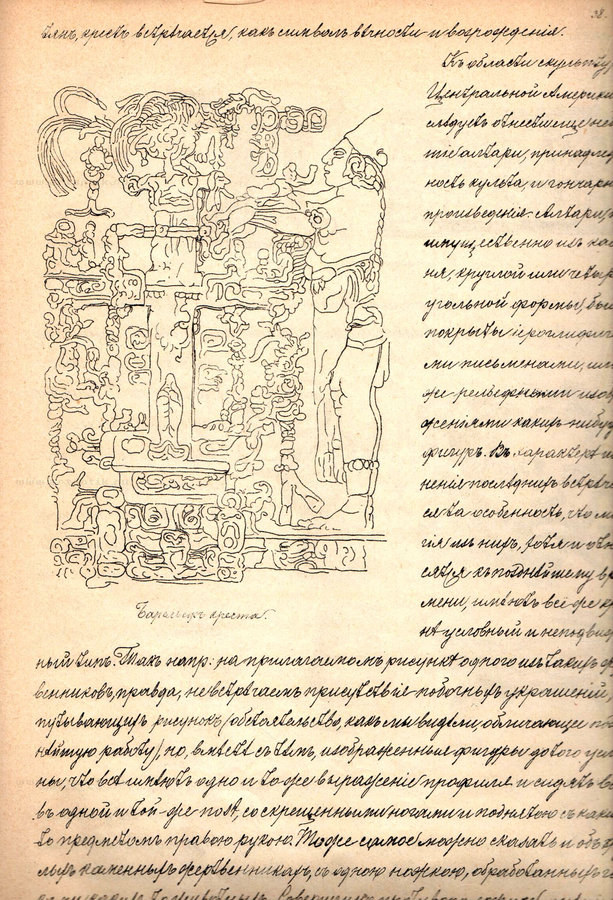 38.
тянъ, крестъ встрѣчается, какъ символъ вѣчности и возрожденія.
Къ области скульпту
Центральной Америки
слѣдуетъ отнести еще не
тіе алтари, принадле
ность культа, и гончар
произведенія. Алтари,
имущественно изъ ка
ня, круглой или четыр
угольной формы, бы
покрыты іероглифиче
ми письменами, ил
же рельефными изоб
женіями какихъ нибуд
фигуръ. Въ характерѣ
ненія послѣднихъ встрѣча
ся та особенность, что
гія изъ нихъ, хотя и отно
сятся къ позднѣйшему в
мени, имѣютъ все же
условный и неподвиж
ный типъ. Такъ напр: на прилагаемомъ рисункѣ одного изъ такихъ
венниковъ, правда, не встрѣчаемъ присутствіе побочныхъ украшеній
путывающихъ рисунокъ (обстоятельство, какъ мы видѣли, обличающее
нѣйшую работу), но, вмѣстѣ съ тѣмъ, изображенныя фигуры до того усл
ны, что всѣ имѣютъ одно и то-же выраженіе профиля и сидятъ в
въ одной и той-же позѣ, со скрещенными ногами и поднятою съ каки
то предметомъ правою рукою. Тоже самое можно сказать и объ
лыхъ каменныхъ жертвенникахъ, съ одною ножкою, обработанныхъ
Барельефъ креста.